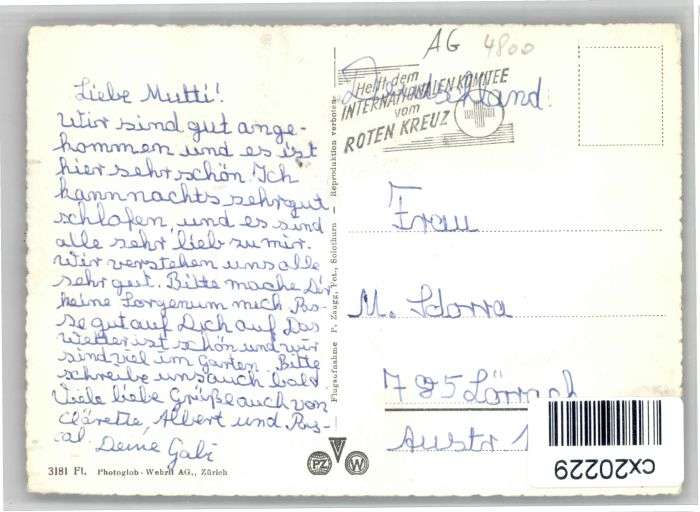 AG 4800
Liebe Mutti!
Wir sind gut ange-
kommen und es ist
hier sehr schön. Ich
kann nachts sehr gut
schlafen, und es sind
alle sehr lieb zu mir.
Wir verstehen uns alle
sehr gut. Bitte mache Dir
keine Sorgen um mich Pas-
se gut auf Dich auf Das
Wetter ist schön und wir
sind viel im Garten. Bitte
schreibe uns auch bald
Viele liebe Grüße auch von
Clärette, Albert und Pas-
cal. Deine Gabi
3181 Fl. Photoglob-Wehrli AG., Zürich
Flugaufnahme P. Zaugg, Vet., Solothurn - Reproduktion verboten
PZ W
Helft dem
INTERNATIONALEN KOMITEE
vom
ROTEN KREUZ
Deutschland
Frau
M. Sdorra
785 Lörrach
Austr 1
cx20229